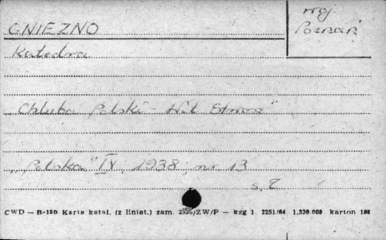 GNIEZNO
woj
Poznań
Katedra
"Chluba Polski - Wit Stwosz"
"Polska" IV, 1938, nr 13
s. 2
CWD — B-180 Karta katal. (z liniat.) zam. /ZW/P — kzg 1 2251/64 1,530.000 karton 180